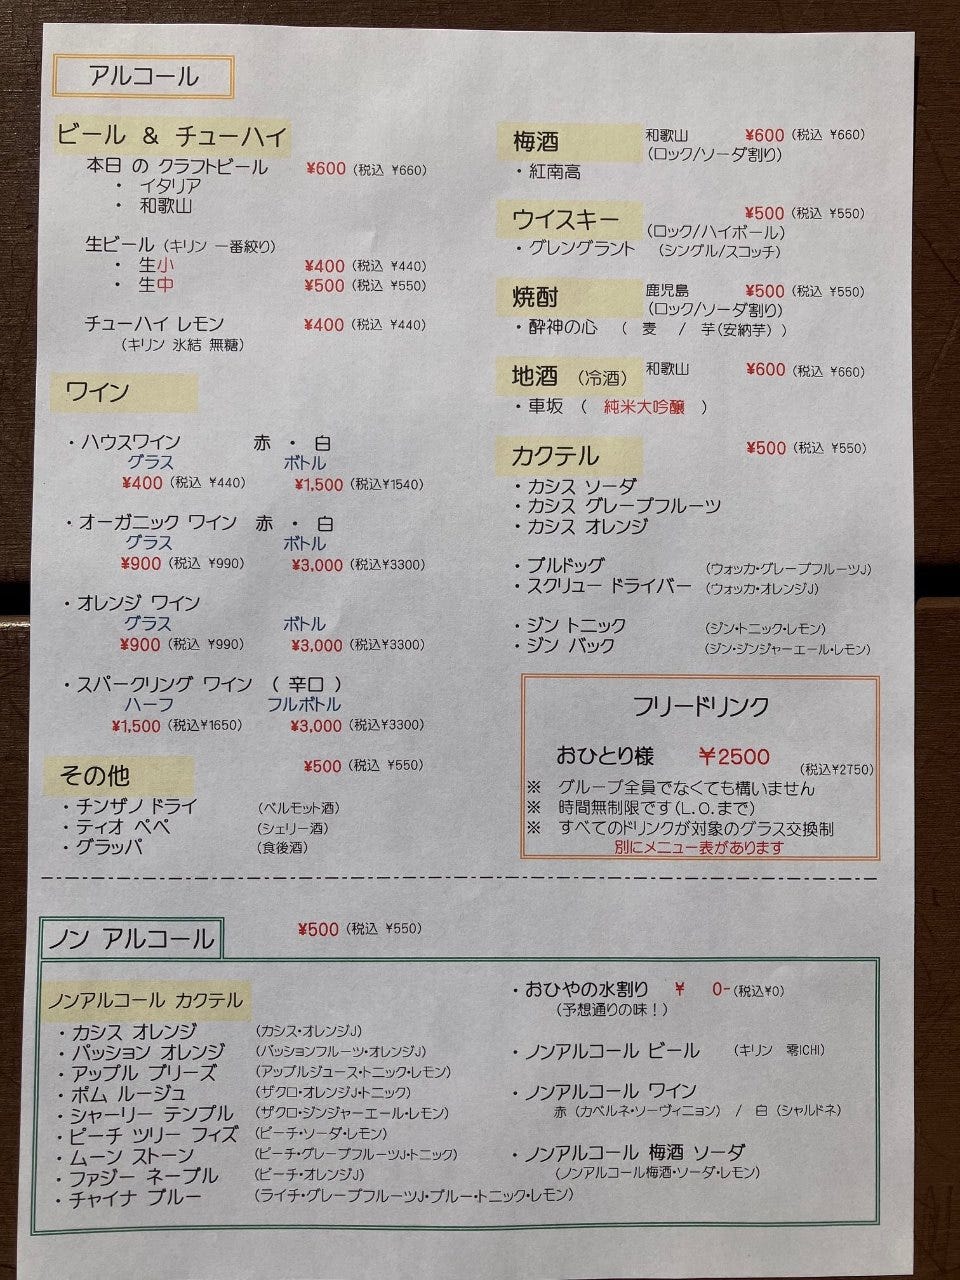 アルコール
ビール & チューハイ
本日 の クラフトビール ¥600 (税込 ¥660)
・ イタリア
・ 和歌山
生ビール (キリン 一番絞り)
・ 生小 ¥400 (税込 ¥440)
・ 生中 ¥500 (税込 ¥550)
チューハイ レモン ¥400 (税込 ¥440)
(キリン 氷結 無糖)
ワイン
・ハウスワイン 赤 ・ 白
グラス ボトル
¥400 (税込 ¥440) ¥1,500 (税込¥1540)
・オーガニック ワイン 赤 ・ 白
グラス ボトル
¥900 (税込 ¥990) ¥3,000 (税込¥3300)
・オレンジ ワイン
グラス ボトル
¥900 (税込 ¥990) ¥3,000 (税込¥3300)
・スパークリング ワイン ( 辛口 )
ハーフ フルボトル
¥1,500 (税込¥1650) ¥3,000 (税込¥3300)
その他 ¥500 (税込 ¥550)
・チンザノ ドライ (ベルモット酒)
・ティオ ペペ (シェリー酒)
・グラッパ (食後酒)
梅酒 和歌山 ¥600 (税込 ¥660)
(ロック/ソーダ割り)
・紅南高
ウイスキー ¥500 (税込 ¥550)
(ロック/ハイボール)
・グレングラント (シングル/スコッチ)
焼酎 鹿児島 ¥500 (税込 ¥550)
(ロック/ソーダ割り)
・酔神の心 ( 麦 / 芋(安納芋) )
地酒 (冷酒) 和歌山 ¥600 (税込 ¥660)
・車坂 ( 純米大吟醸 )
カクテル ¥500 (税込 ¥550)
・カシス ソーダ
・カシス グレープフルーツ
・カシス オレンジ
・ブルドッグ (ウォッカ・グレープフルーツJ)
・スクリュー ドライバー (ウォッカ・オレンジJ)
・ジン トニック (ジン・トニック・レモン)
・ジン バック (ジン・ジンジャーエール・レモン)
フリードリンク
おひとり様 ¥2500 (税込¥2750)
※ グループ全員でなくても構いません
※ 時間無制限です(L.O.まで)
※ すべてのドリンクが対象のグラス交換制
別にメニュー表があります
ノン アルコール ¥500 (税込 ¥550)
ノンアルコール カクテル
・カシス オレンジ (カシス・オレンジJ)
・パッション オレンジ (パッションフルーツ・オレンジJ)
・アップル ブリーズ (アップルジュース・トニック・レモン)
・ポム ルージュ (ザクロ・オレンジJ・トニック)
・シャーリー テンプル (ザクロ・ジンジャーエール・レモン)
・ピーチ ツリー フィズ (ピーチ・ソーダ・レモン)
・ムーン ストーン (ピーチ・グレープフルーツJ・トニック)
・ファジー ネーブル (ピーチ・オレンジJ)
・チャイナ ブルー (ライチ・グレープフルーツJ・ブルー・トニック・レモン)
・おひやの水割り ¥ 0-(税込¥0)
(予想通りの味！)
・ノンアルコール ビール (キリン 零ICHI)
・ノンアルコール ワイン
赤 (カベルネ・ソーヴィニョン) / 白 (シャルドネ)
・ノンアルコール 梅酒 ソーダ
(ノンアルコール梅酒・ソーダ・レモン)